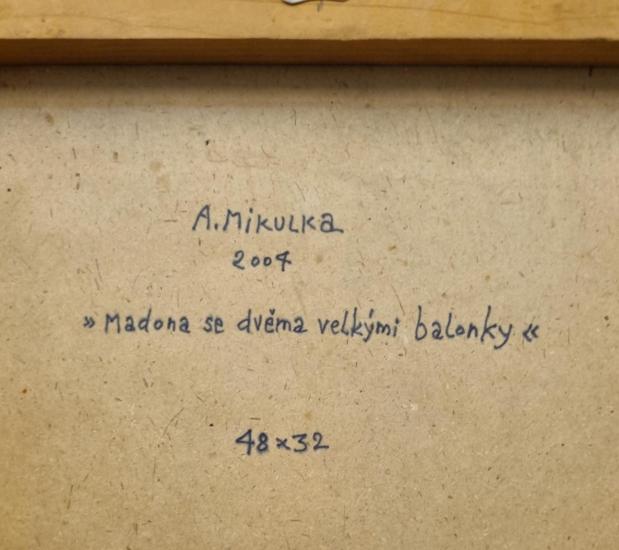 A. Mikulka
2004
» Madona se dvěma velkými balonky «
48 x 32